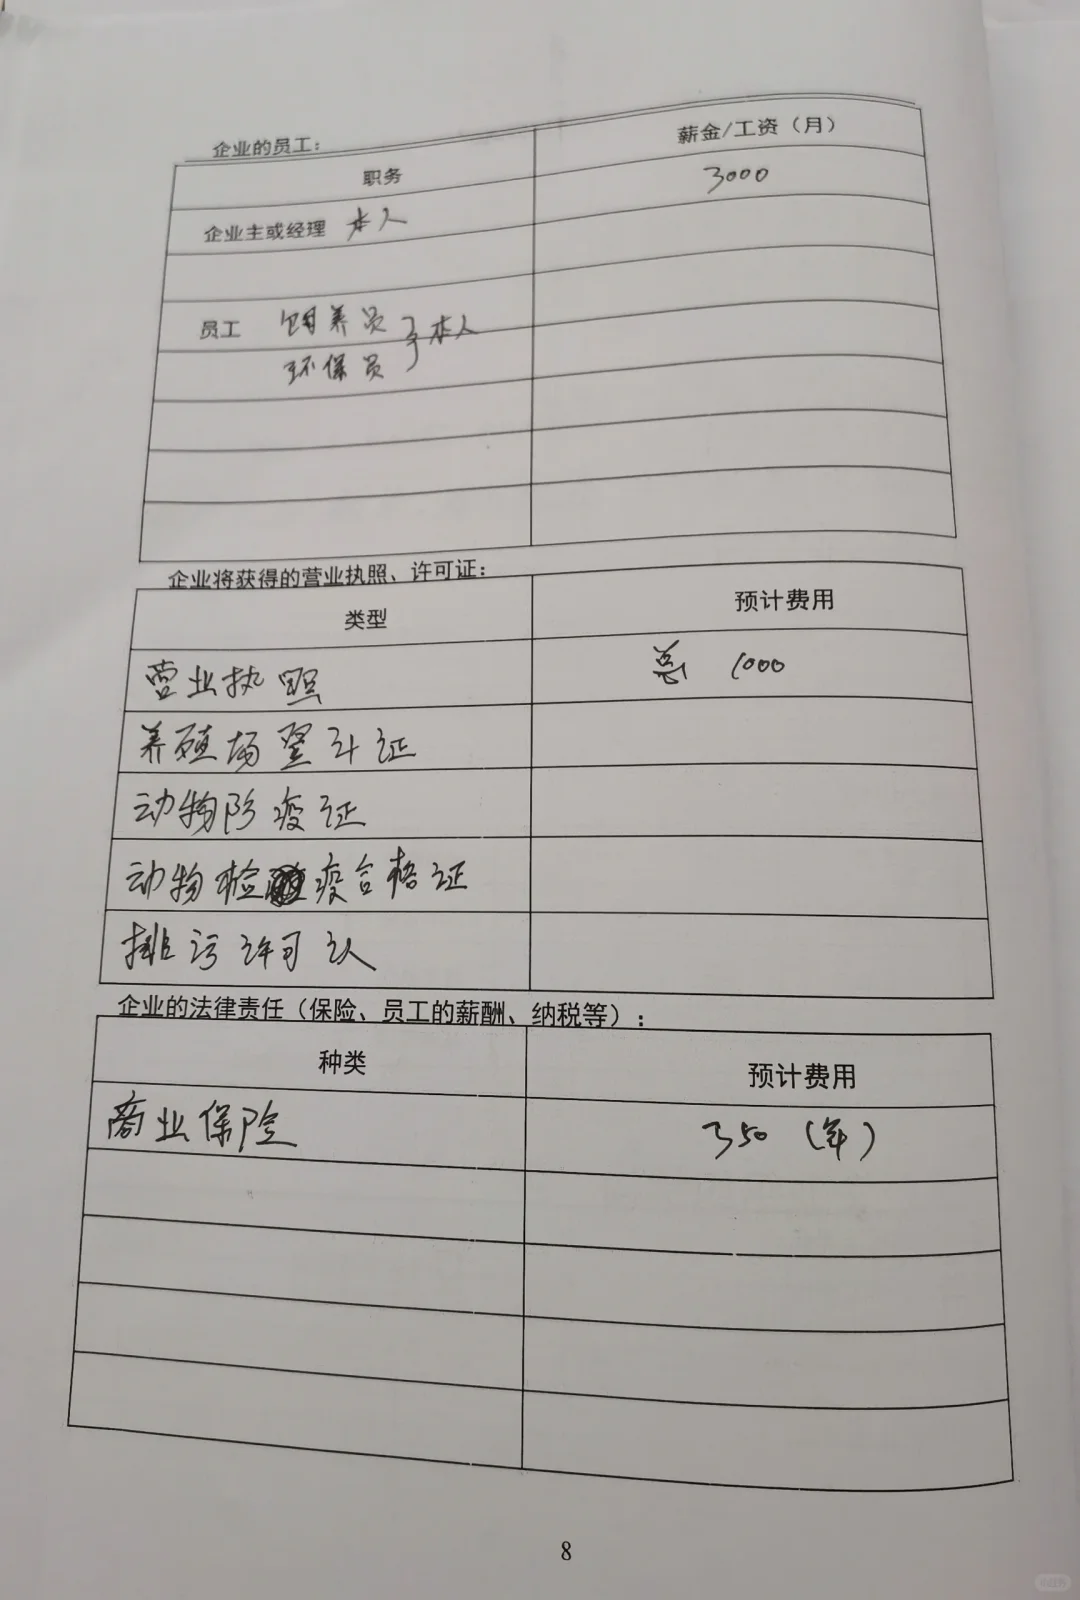 企业的员工：
职务 薪金/工资（月）
企业主或经理 本人 3000
员工 饲养员 } 本人
环保员
企业将获得的营业执照、许可证：
类型 预计费用
营业执照 总 1000
养殖场登斗证
动物防疫证
动物检疫合格证
排污许可认
企业的法律责任（保险、员工的薪酬、纳税等）：
种类 预计费用
商业保险 350（年）
8